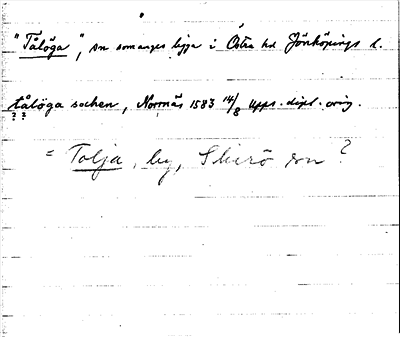 "Tålöga", sn som anges ligga i Östra hd Jönköpings l.
tålöga sochen, Normäs 1583 14/8 Upps. dipl. orig.
? ?
= Tolja, by, Skirö sn?